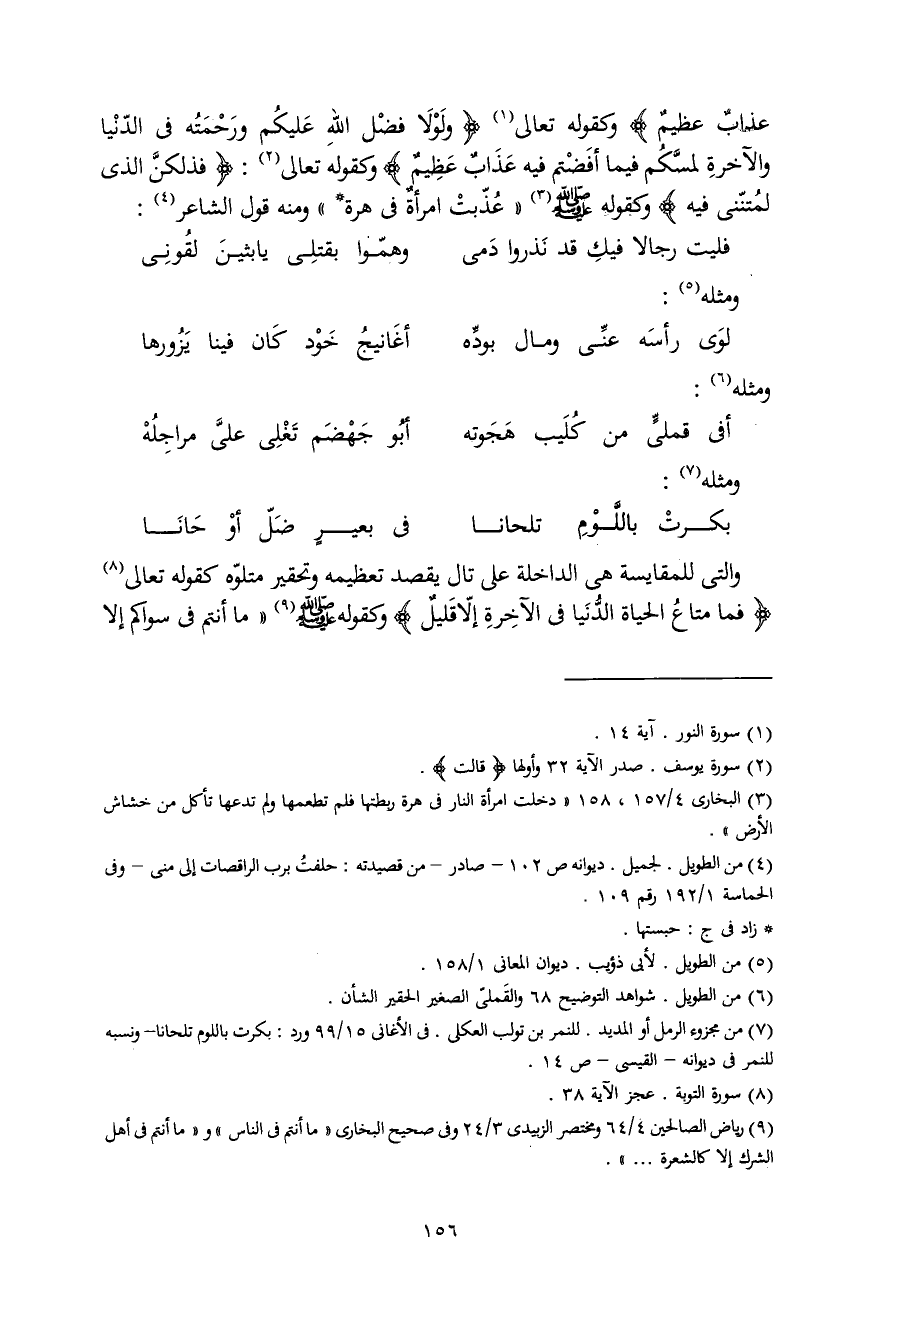 عذابٌ عظيمٌ ﴾ وكقوله تعالى(١) ﴿ ولَوْلَا فضْل اللهِ عَليكُم ورَحْمَتُه فى الدّنْيا
والآخرةِ لمسَّكُم فيما أفَضْتم فيه عَذَابٌ عَظِيمٌ ﴾ وكقوله تعالى(٢) : ﴿ فذلكنَّ الذى
لمُتنّنى فيه ﴾ وكقوله ﷺ(٣) « عُذّبتْ امرأةٌ فى هرة* » ومنه قول الشاعر(٤) :
فليت رجالا فيكِ قد نَذروا دَمى وهمّوا بقتلِى يابثينَ لقُونِى
ومثله(٥) :
لوَى رأسَه عنِّى ومال بودِّه أغَانيجُ خَوْد كَان فينا يَزُورها
ومثله(٦) :
أفى قملىٍّ من كُلَيب هَجَوته أبُو جَهْضَم تَغْلِى علىَّ مراجِلُهْ
ومثله(٧) :
بكرتْ باللَّوْمِ تلحانا فى بعيرٍ ضَلّ أوْ حَانَا
والتى للمقايسة هى الداخلة على تال يقصد تعظيمه وتحقير متلوّه كقوله تعالى(٨)
﴿ فما متاعُ الحياة الدُّنيَا فى الآخِرةِ إلّاقَليلٌ ﴾ وكقولهﷺ(٩) « ما أنتم فى سواكم إلا
(١) سورة النور . آية ١٤ .
(٢) سورة يوسف . صدر الآية ٣٢ وأولها ﴿ قالت ﴾ .
(٣) البخارى ١٥٧/٤ ، ١٥٨ « دخلت امرأة النار فى هرة ربطتها فلم تطعمها ولم تدعها تأكل من خشاش
الأرض » .
(٤) من الطويل . لجميل . ديوانه ص ١٠٢ – صادر – من قصيدته : حلفتُ برب الراقصات إلى منى – وفى
الحماسة ١٩٢/١ رقم ١٠٩ .
* زاد فى ج : حبستها .
(٥) من الطويل . لأبى ذؤيب . ديوان المعانى ١٥٨/١ .
(٦) من الطويل . شواهد التوضيح ٦٨ والقَملىّ الصغير الحقير الشأن .
(٧) من مجزوء الرمل أو المديد . للنمر بن تولب العكلى . فى الأغانى ٩٩/١٥ ورد : بكرت باللوم تلحانا– ونسبه
للنمر فى ديوانه – القيسى – ص ١٤ .
(٨) سورة التوبة . عجز الآية ٣٨ .
(٩) رياض الصالحين ٦٤/٤ ومختصر الزبيدى ٢٤/٣ وفى صحيح البخارى « ما أنتم فى الناس » و « ما أنتم فى أهل
الشرك إلا كالشعرة ... » .
١٥٦